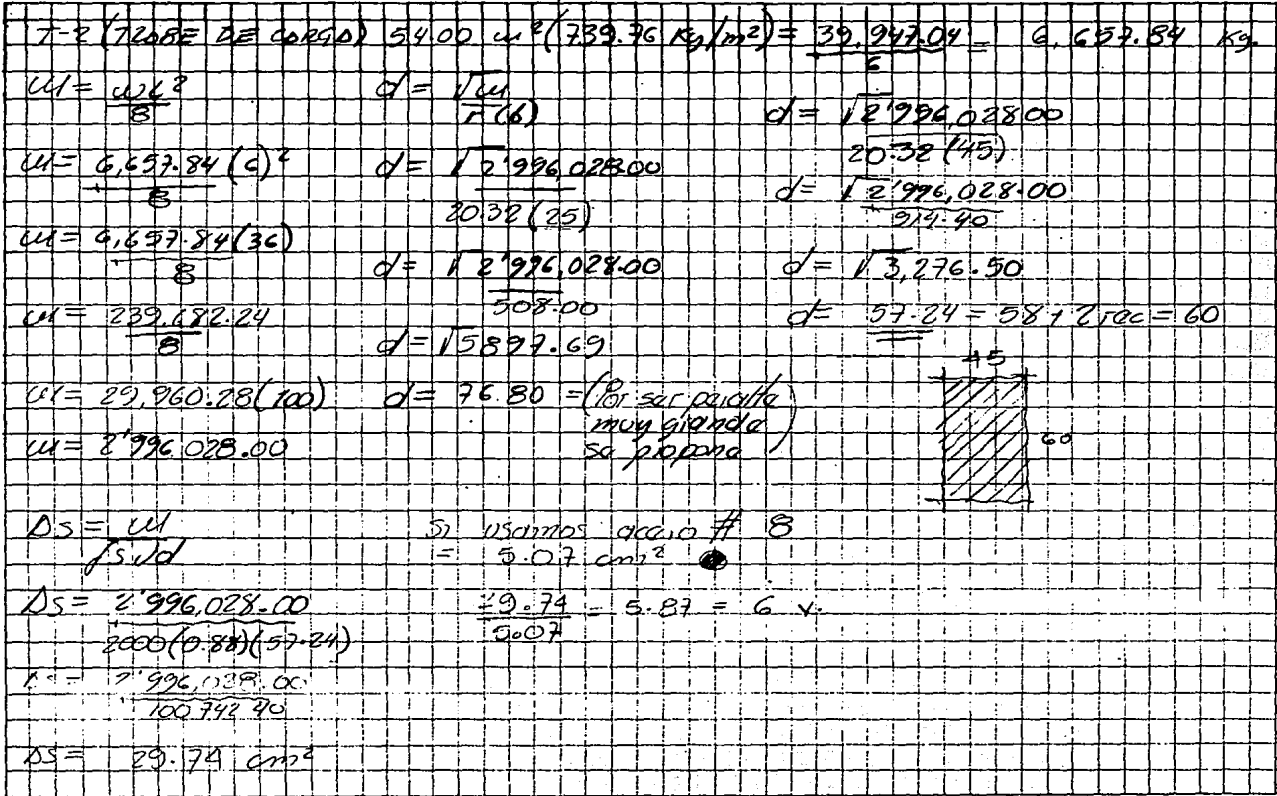 T-2 (TRABE DE CARGA) 54.00 m²(739.76 Kg/m²) = 39,947.04 / 6 = 6,657.84 Kg.
M = wL² / 8
M = 6,657.84 (6)² / 8
M = 6,657.84 (36) / 8
M = 239,682.24 / 8
M = 29,960.28 (100)
M = 2'996,028.00
d = √M / r (b)
d = √2'996,028.00 / 20.32 (25)
d = √2'996,028.00 / 508.00
d = √5897.69
d = 76.80 = (Por ser peralte
muy grande
se propone)
d = √2'996,028.00 / 20.32 (45)
d = √2'996,028.00 / 914.40
d = √3,276.50
d = 57.24 = 58 + 2 rec = 60
45
60
As = M / fs J d
As = 2'996,028.00 / 2000 (0.88) (57.24)
As = 2'996,028.00 / 100 742 40
As = 29.74 cm²
Si usamos acero # 8
= 5.07 cm²
29.74 / 5.07 = 5.87 = 6 v.